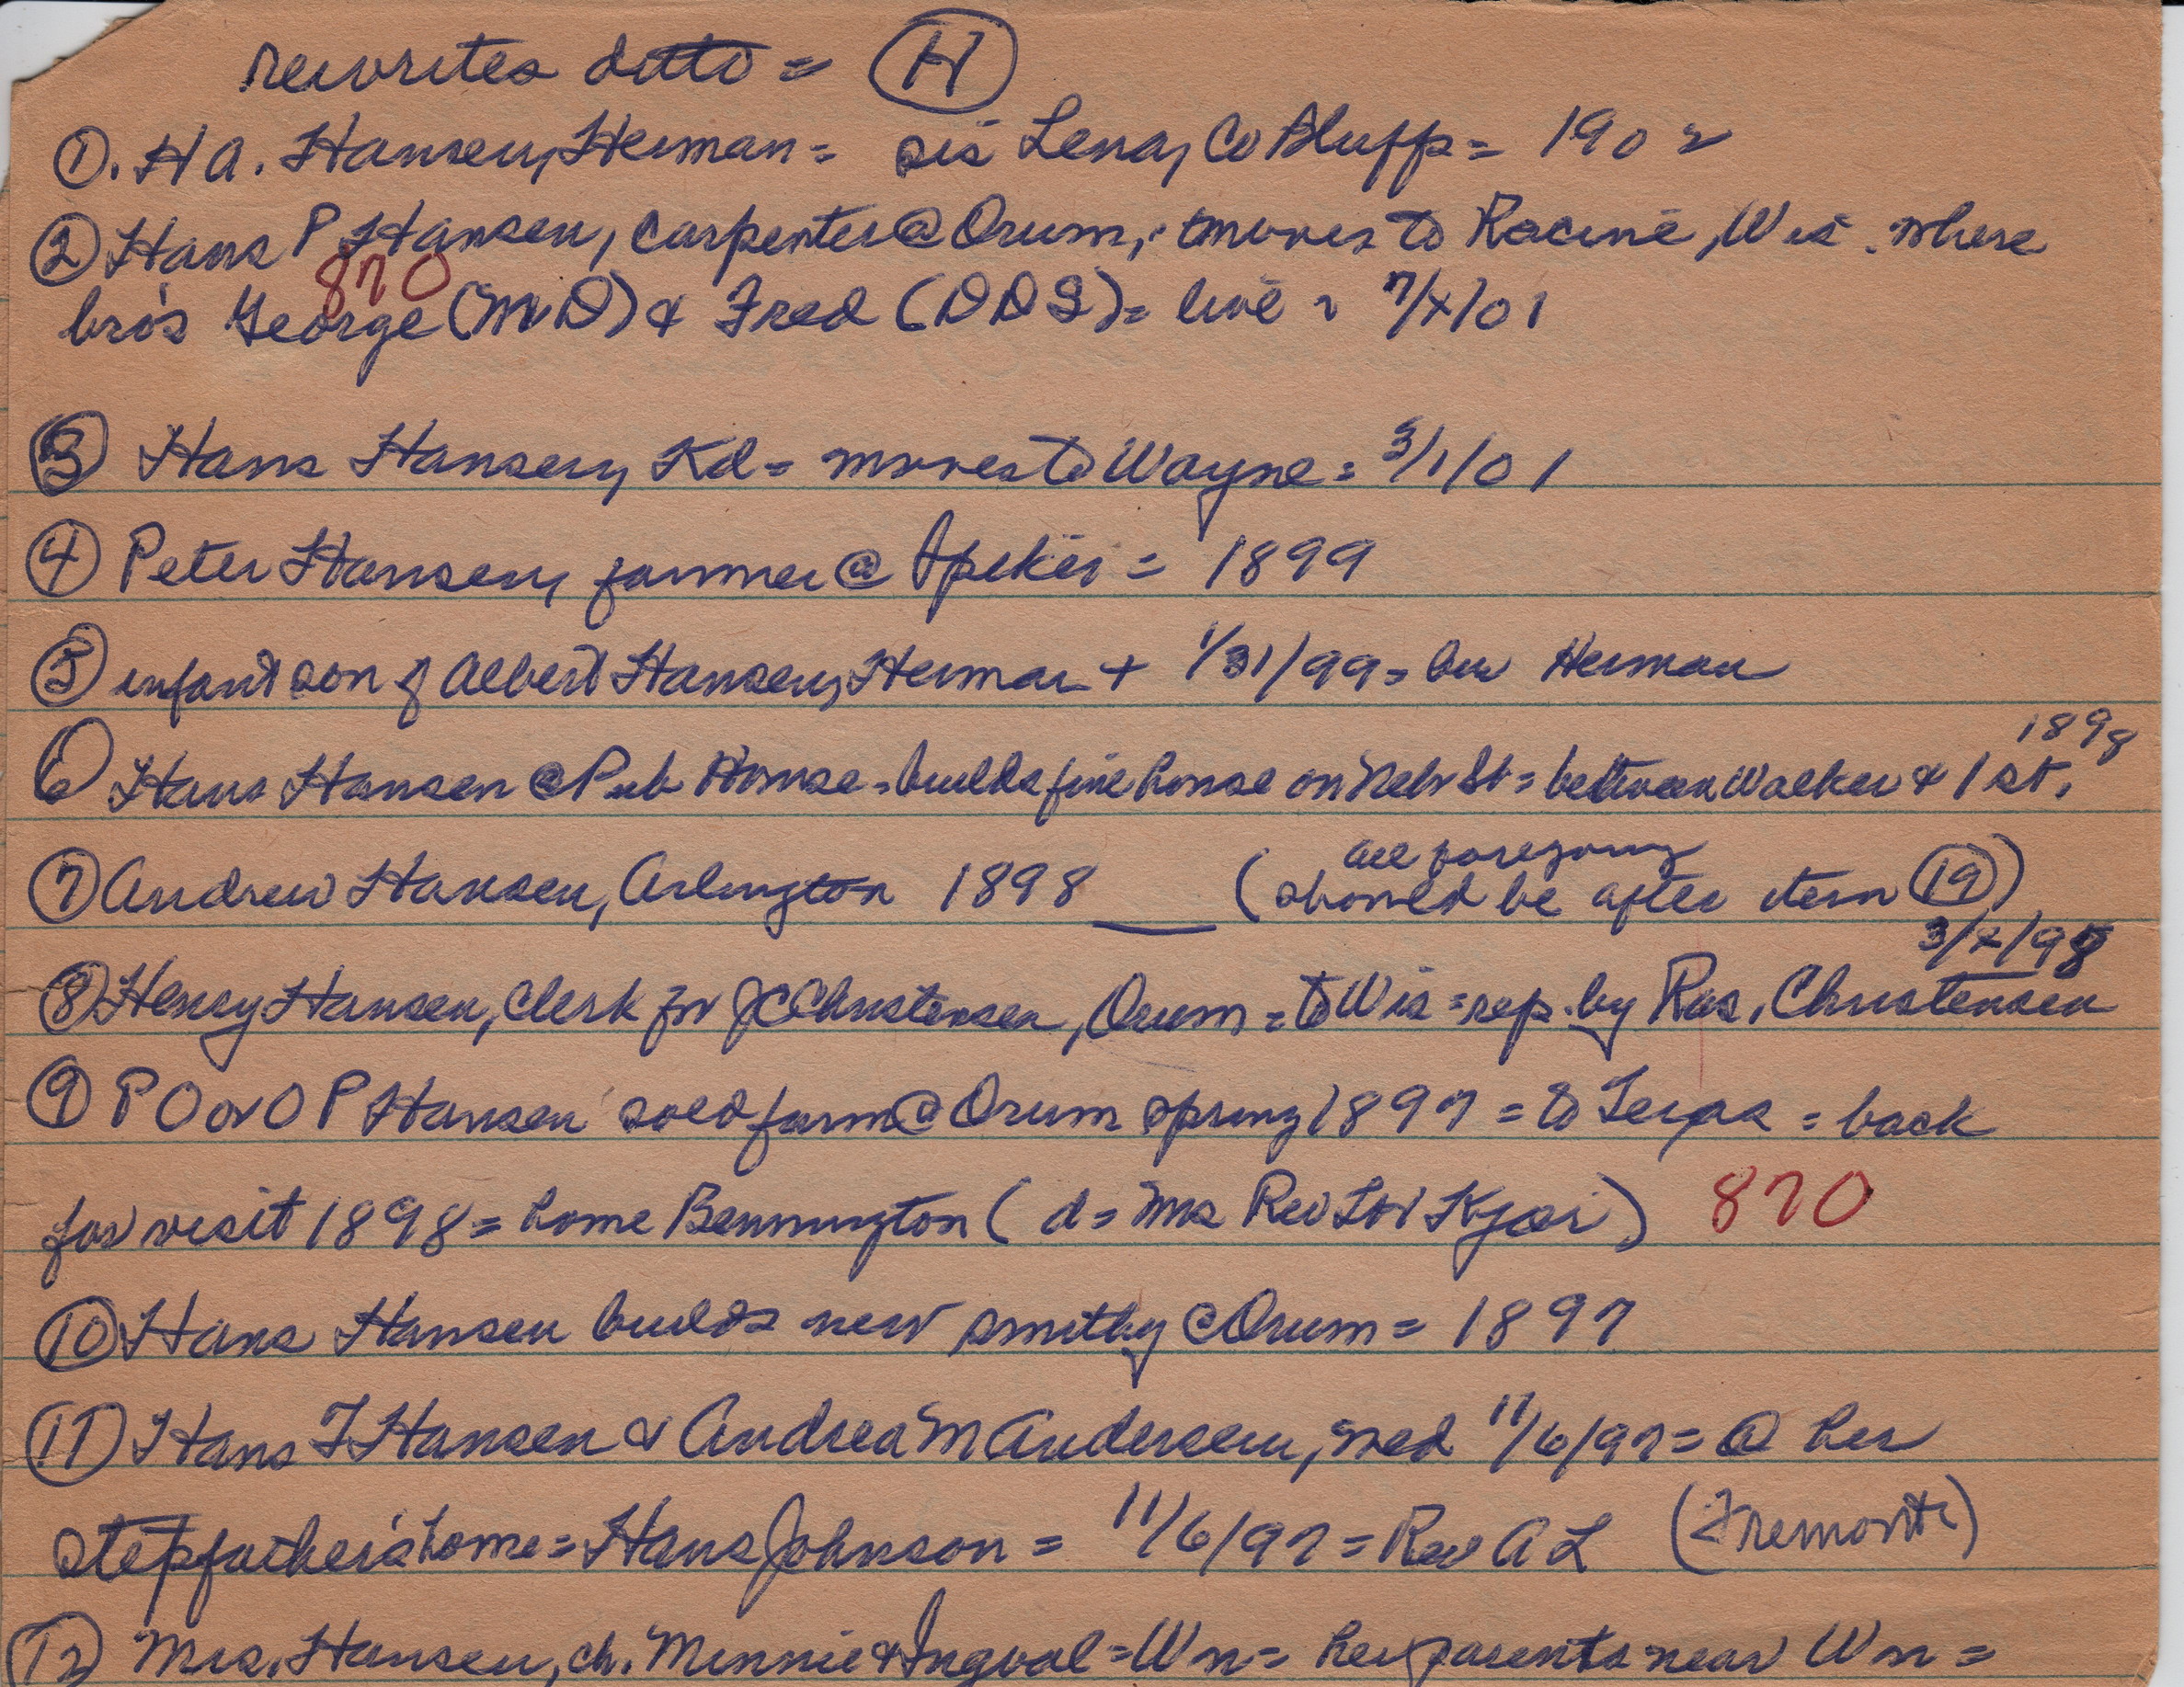 rewrites ditto = (H)
①. H A. Hansen, Herman = sis Lena, Co Bluffs = 1902
② Hans P Hansen, carpenter @ Orum, moves to Racine, Wis. where
870
bro's George (MD) & Fred (DDS) = live = 7/x/01
③ Hans Hansen, Kd = moves to Wayne = 3/1/01
④ Peter Hansen, farmer @ Spiker = 1899
⑤ infant son of Albert Hansen, Herman + 1/31/99 = bu Herman
1898
⑥ Hans Hansen @ Pub House = builds fine house on Nebr St = between Walker & 1st.
all foregoing
⑦ Andrew Hansen, Arlington 1898 __ (should be after item ⑲)
3/x/98
⑧ Henry Hansen, clerk for J C Christensen, Orum = to Wis = rep. by Ras. Christensen
⑨ P O or O P Hansen sold farm @ Orum spring 1897 = to Texas = back
for visit 1898 = home Bennington (d = Mrs Rev Kjar) 870
⑩ Hans Hansen builds new smithy @ Orum = 1897
⑪ Hans F Hansen & Andrea M Andersen, wed 11/6/97 = @ her
stepfather's home = Hans Johnson = 11/6/97 = Rev A L (Fremont)
⑫ Mrs. Hansen, ch. Minnie & Ingval = Wn = her parents near Wn =